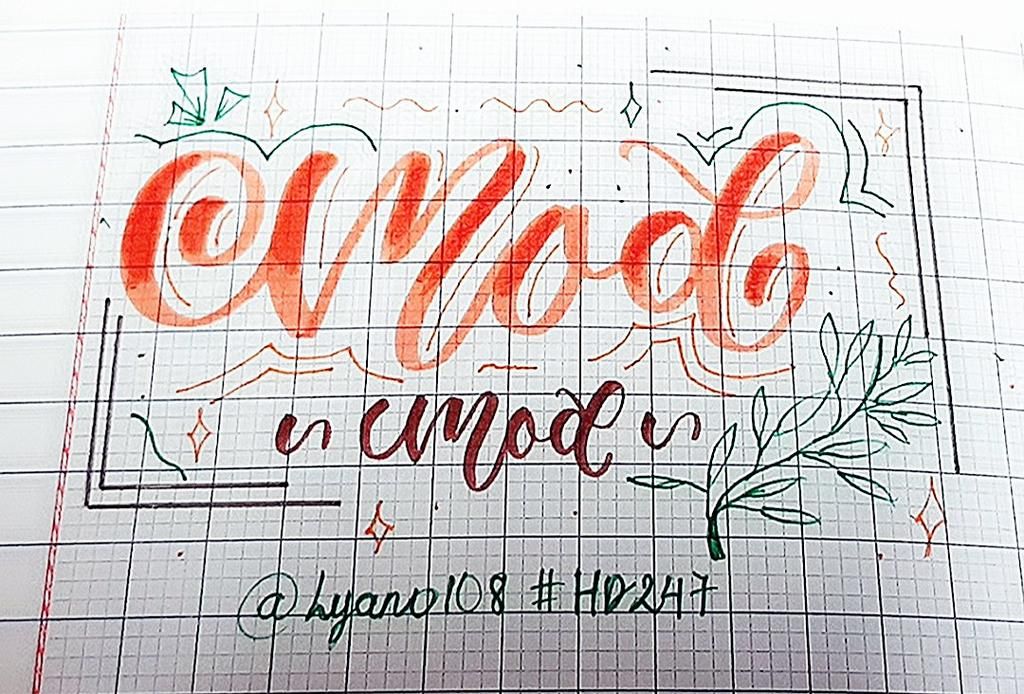 Mod
~ Mod ~
@Lyano108 #HD247